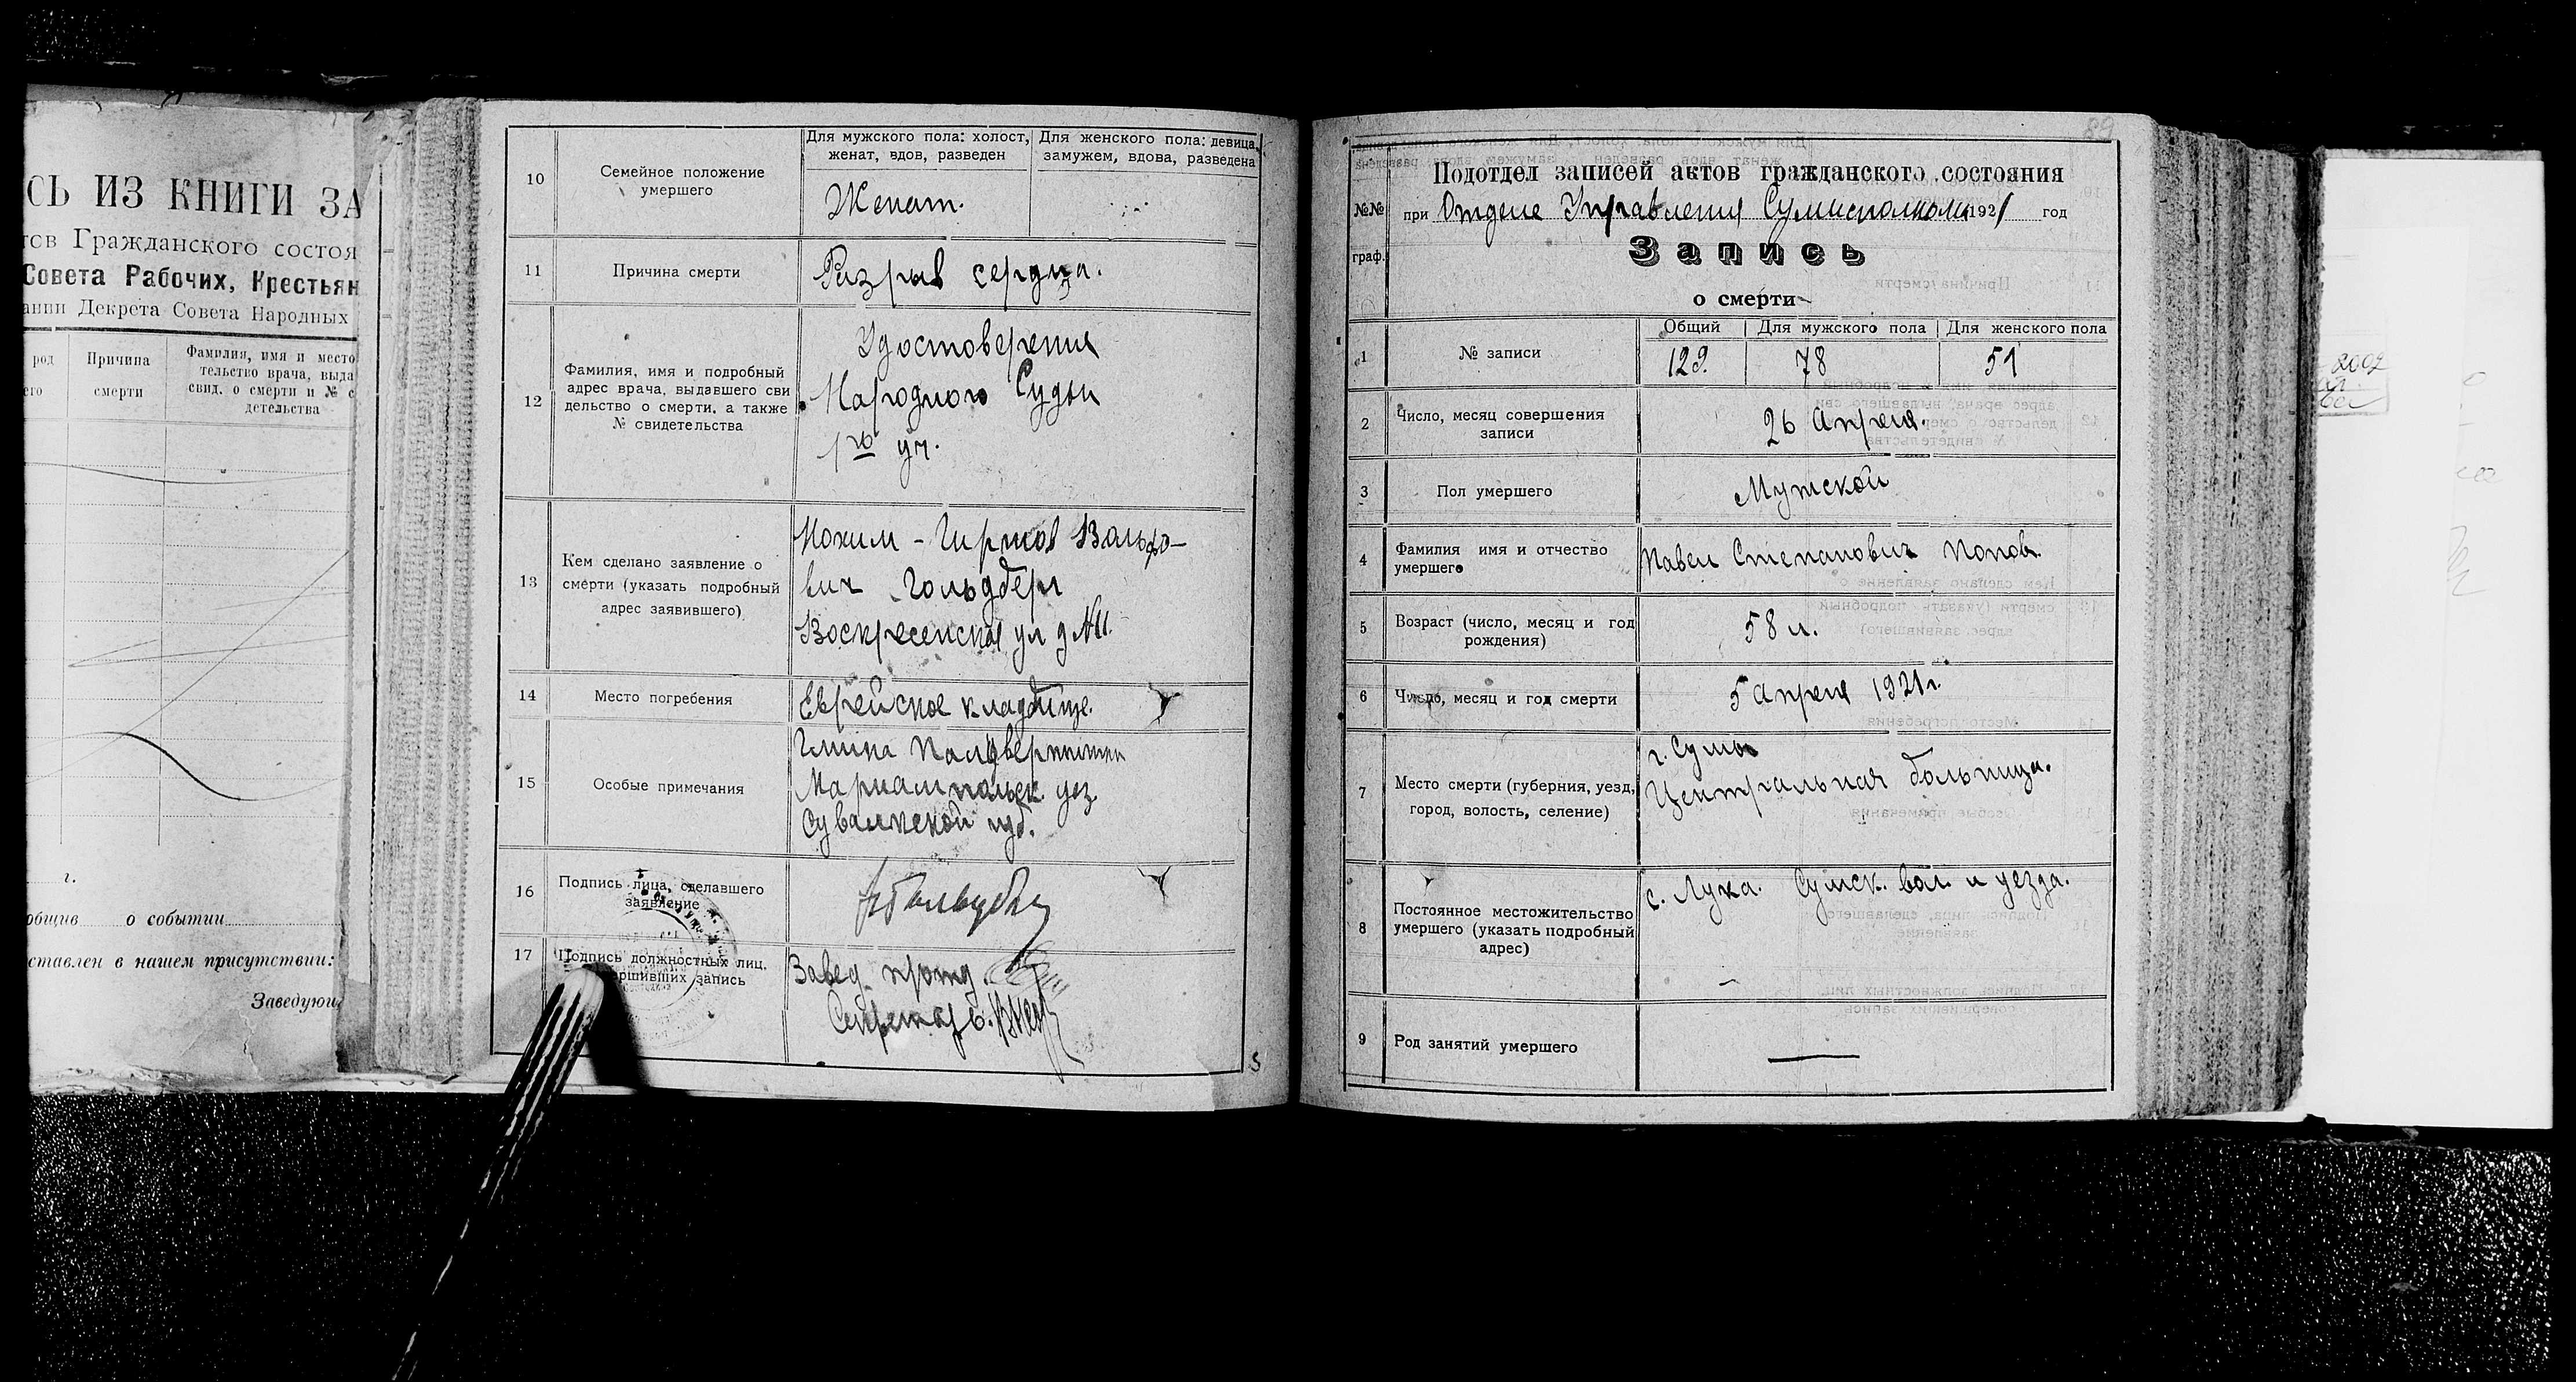 СЬ ИЗ КНИГИ ЗА
тов Гражданского состоя
Совета Рабочих, Крестьян
ании Декрета Совета Народных
род
Причина
смерти
Фамилия, имя и место
тельство врача, выда
свид. о смерти и № с
детельства
его
г.
общив о событии
ставлен в нашем присутствии:
Заведующ
10
Семейное положение
умершего
Для мужского пола: холост,
женат, вдов, разведен
Для женского пола: девица,
замужем, вдова, разведена
Женат.
11
Причина смерти
Разрыв сердца.
12
Фамилия, имя и подробный
адрес врача, выдавшего сви
дельство о смерти, а также
№ свидетельства
Удостоверения
Народного Судьи
1го уч.
13
Кем сделано заявление о
смерти (указать подробный
адрес заявившего)
Гиршов Вольфо-
вич Гольдберг
Воскресенская ул д №11.
14
Место погребения
Еврейское кладбище.
15
Особые примечания
Гмина
Мариампольск уез
Сувалкской губ.
16
Подпись лица, сделавшего
заявление
17
Подпись должностных лиц,
вершивших запись
Завед.
Секретарь.
5
89
Подотдел записей актов гражданского состояния
№№
граф.
при Отделе Управления Сумисполкома 1921 год
Запись
о смерти
1
№ записи
Общий
Для мужского пола
Для женского пола
129.
78
51
2
Число, месяц совершения
записи
26 Апреля.
3
Пол умершего
Мужской
4
Фамилия имя и отчество
умершего
Павел Степанович Попов.
5
Возраст (число, месяц и год
рождения)
58 л.
6
Число, месяц и год смерти
5 Апреля 1921 г.
7
Место смерти (губерния, уезд,
город, волость, селение)
г. Сумы
Центральная больница.
8
Постоянное местожительство
умершего (указать подробный
адрес)
с. Лука. Сумск. вол. и уезда.
9
Род занятий умершего
—
2002